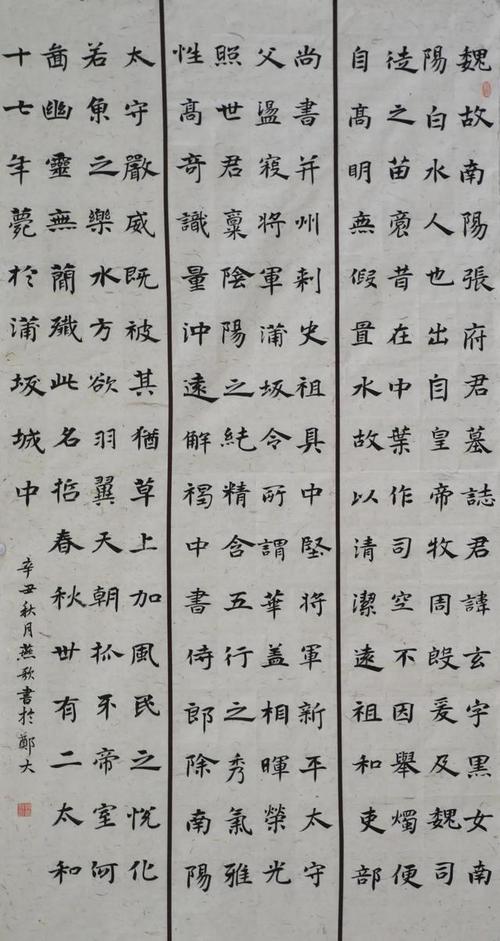 魏故南陽張府君墓誌君諱玄字黑女南
陽白水人也出自皇帝牧周殷爰及魏司
徒之苗裔昔在中葉作司空不因舉燭便
自高明無假置水故以清潔遠祖和吏部
尚書并州刺史祖具中堅將軍新平太守
父盪寇將軍蒲坂令所謂華蓋相暉榮光
照世君稟陰陽之純精含五行之秀氣雅
性高奇識量沖遠解褐中書侍郎除南陽
太守嚴威既被其猶草上加風民之悅化
若魚之樂水方欲羽翼天朝抓牙帝室何
啚幽靈無簡殲此名哲春秋卅有二太和
十七年薨於蒲坂城中
辛丑秋月燕歌書於鄭大